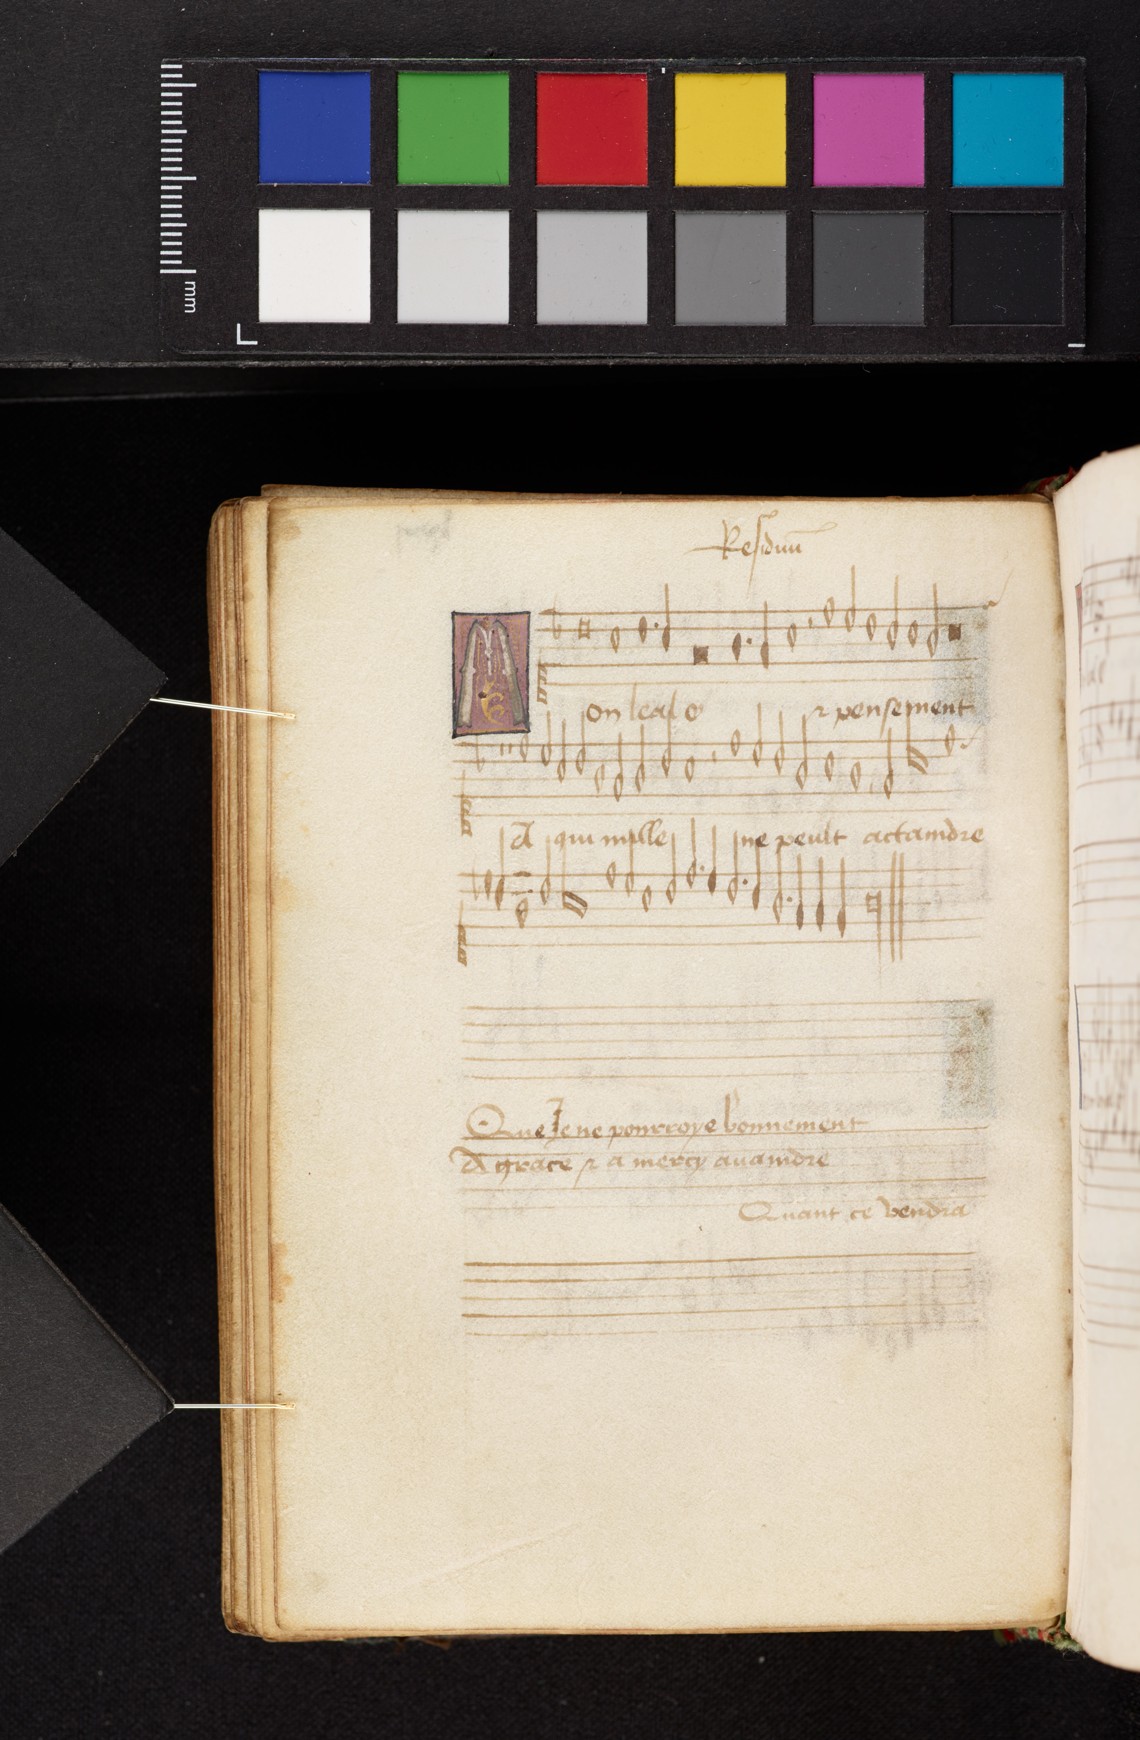 mm
Residuu
Mon leal er pensement
A qui nulle ne peult actaindre
Que Je ne pourroye bonnement
A grace et a mercy auaindre
Quant ce vendra